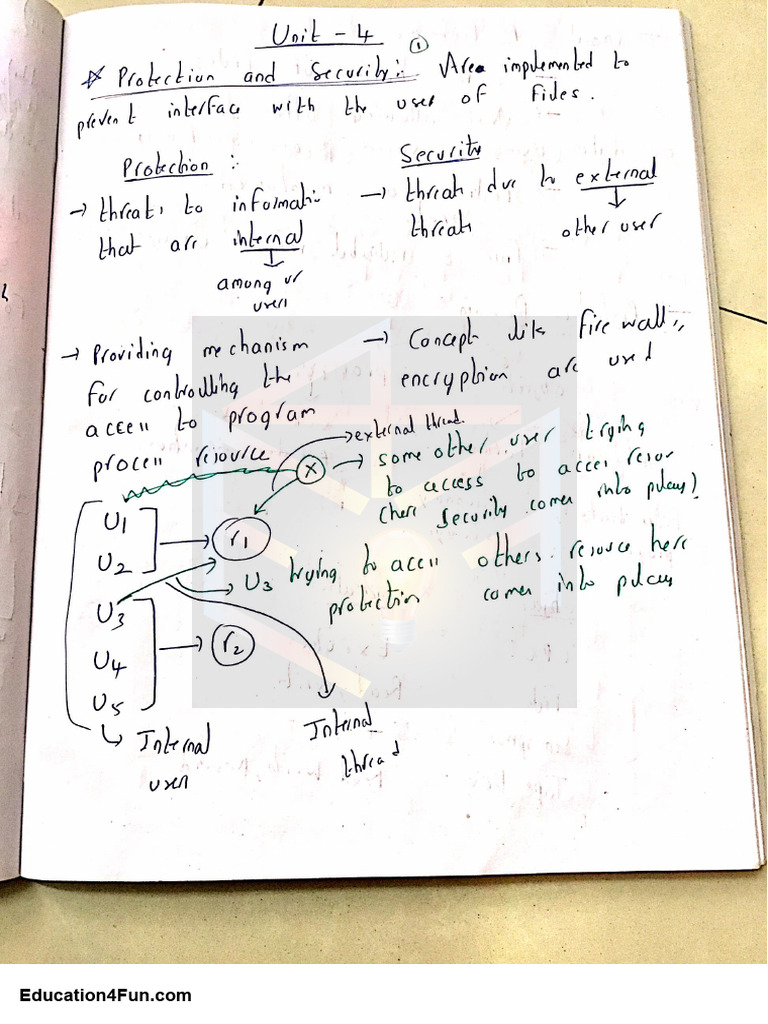 Unit - 4
①
* Protection and Security :- Area implemented to
prevent interface with the user of files.
Protection :
→ threats to informati
that are internal
↓
among ur
users
→ Providing mechanism
for controlling the
access to program
process resource
Security
→ threats due to external
threats
↓
other user
→ Concept like fire wall,
encryption are used
→ external thread.
X → some other user trying
to access to access resour
(here security comes into places)
U1
U2 → r1
→ U3 trying to access others resource here
protection comes into places
U3
U4 → r2
U5
↳ Internal
users
Internal
thread
Education4Fun.com